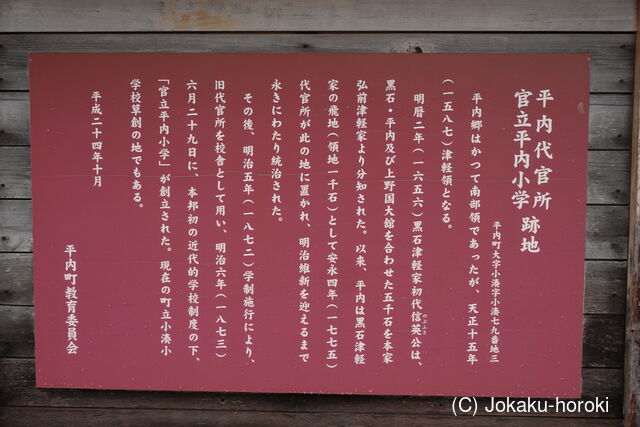 平内代官所
官立平内小学 跡地
平内町大字小湊字小湊七九番地三
平内郷はかつて南部領であったが、天正十五年
(一五八七)津軽領となる。
明暦二年(一六五六)黒石津軽家初代信英公は、
のぶふさ
黒石・平内及び上野国大館を合わせた五千石を本家
弘前津軽家より分知された。以来、平内は黒石津軽
家の飛地(領地一千石)として安永四年(一七七五)
代官所が此の地に置かれ、明治維新を迎えるまで
永きにわたり統治された。
その後、明治五年(一八七二)学制施行により、
旧代官所を校舎として用い、明治六年(一八七三)
六月二十九日に、本邦初の近代的学校制度の下、
「官立平内小学」が創立された。現在の町立小湊小
学校草創の地でもある。
平成二十四年十月
平内町教育委員会
(C) Jokaku-horoki